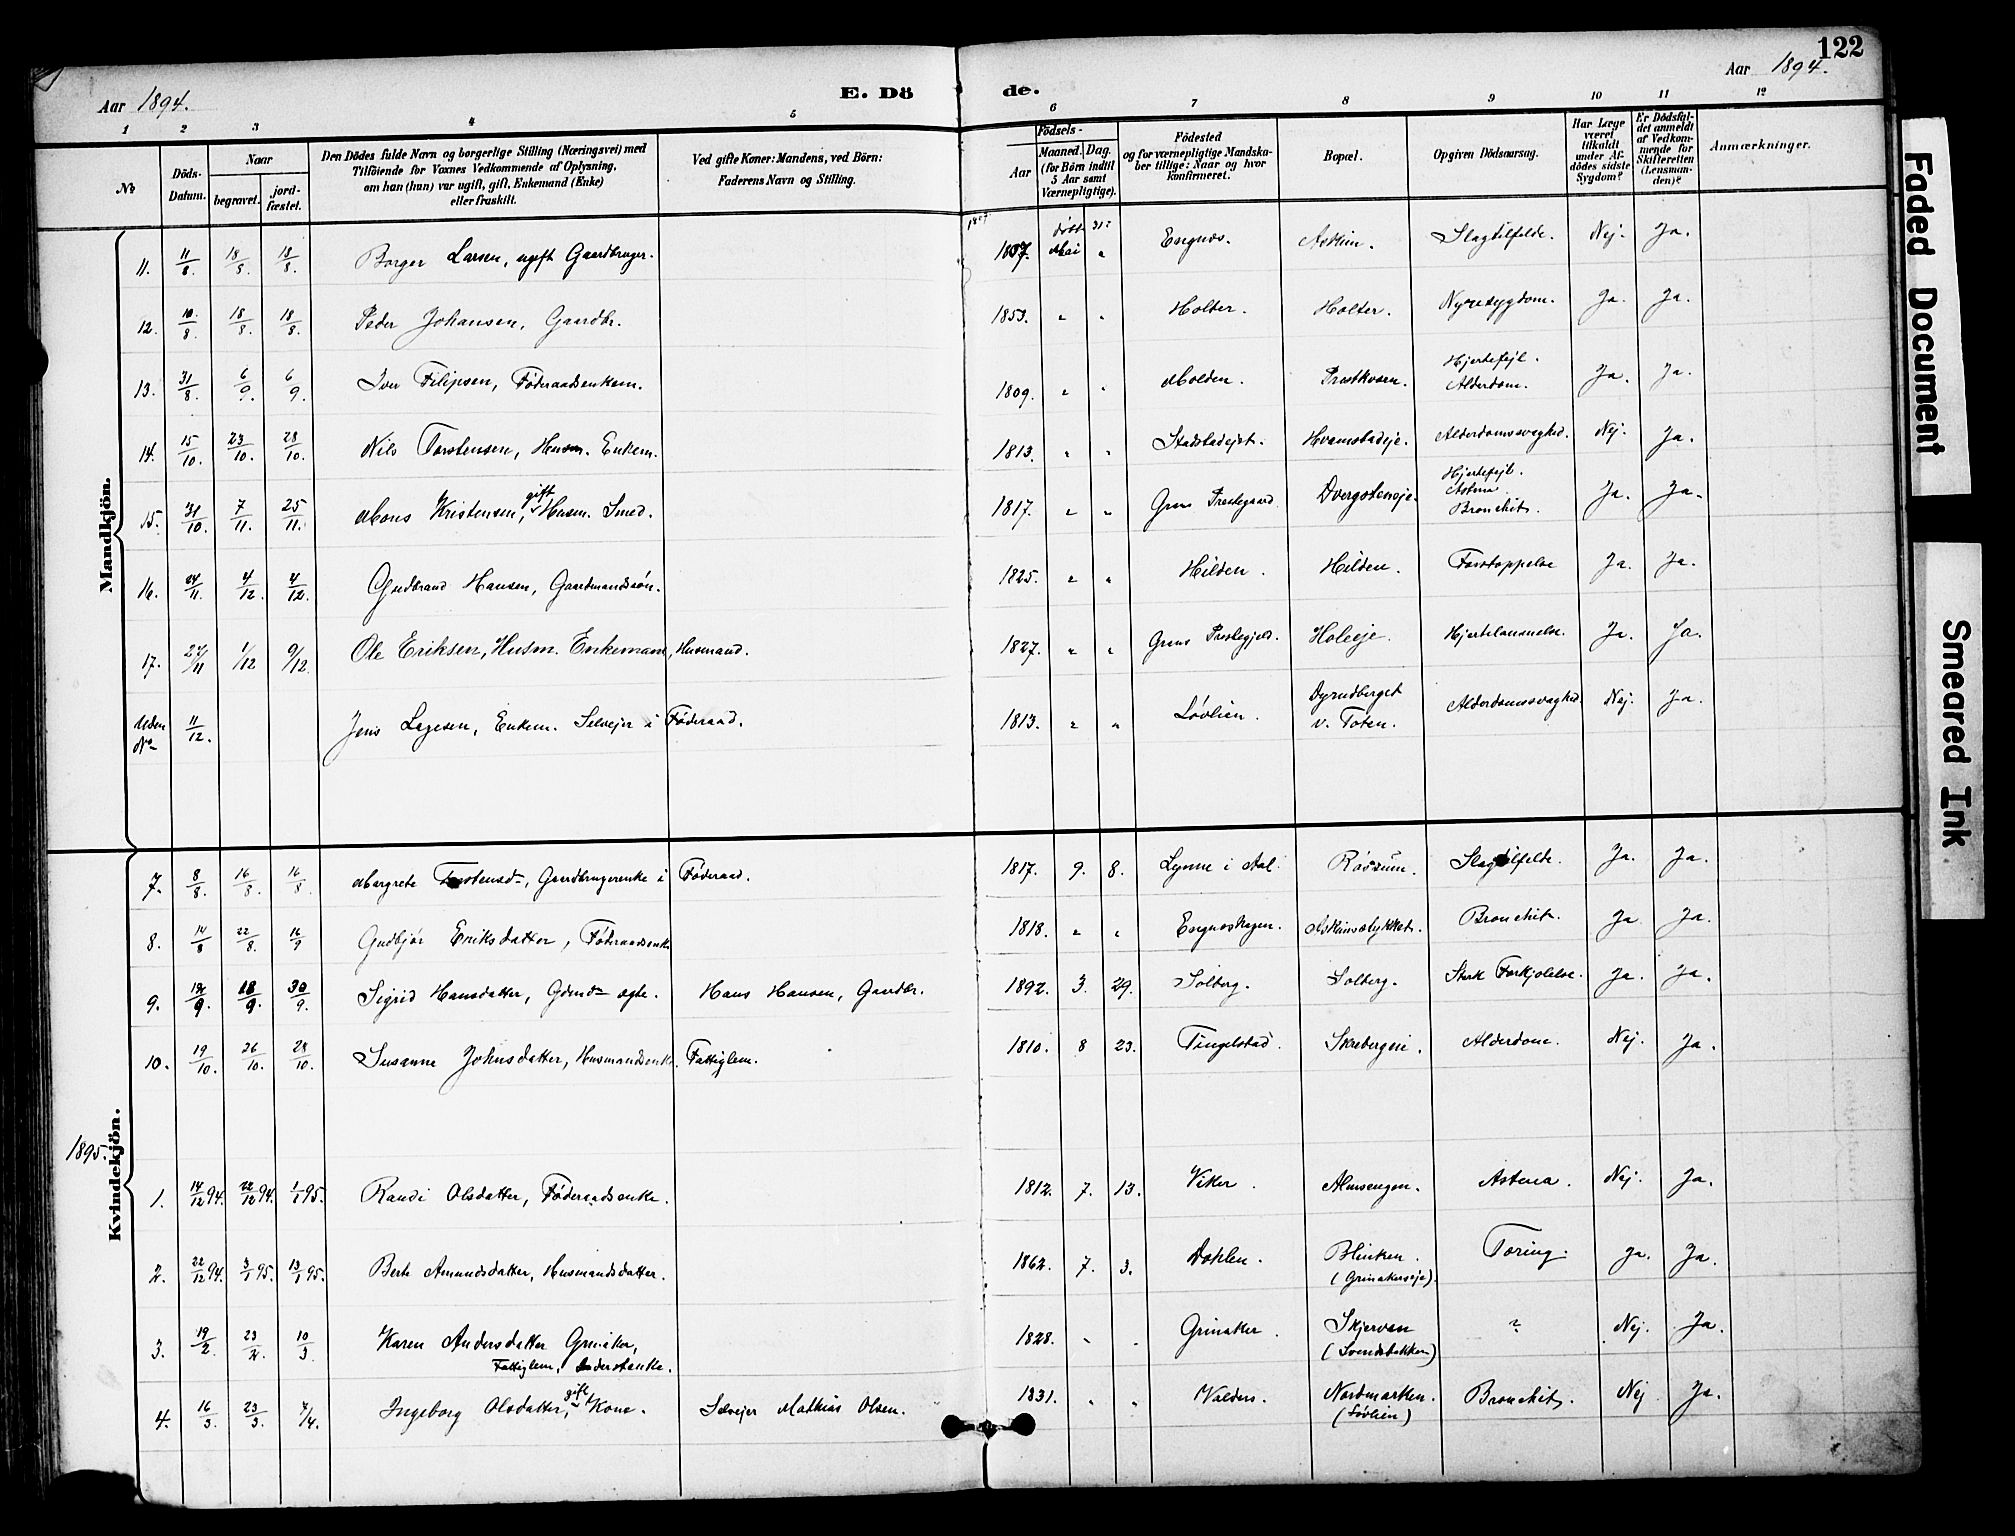 122
Aar 1894.
E. Dö de.
Aar 1894.
1 2 3 4 5 6 7 8 9 10 11 12
No
Döds-Datum.
Naar
begravet.
jord-fæstet.
Den Dödes fulde Navn og borgerlige Stilling (Næringsvei) med
Tilföiende for Voxnes Vedkommende af Oplysning,
om han (hun) var ugift, gift, Enkemand (Enke)
eller fraskilt.
Ved gifte Koner: Mandens, ved Börn:
Faderens Navn og Stilling.
Födsels-
Aar
Maaned. Dag.
(for Börn indtil
5 Aar samt
Værnepligtige).
Födested
og for værnepligtige Mandska-
ber tillige: Naar og hvor
konfirmeret.
Bopæl.
Opgiven Dödsaarsag.
Har Læge
været
tilkaldt
under Af-
dödes sidste
Sygdom?
Er Dödsfal-
det anmeldt
af Vedkom-
mende for
Skifteretten
(Lensman-
den)?
Anmærkninger.
Mandkjön.
11. 11/8 18/8. 18/8. Borger Larsen, ugift Gaardbruger. 1837. døbt Mai 31te " Engnæs. Askim. Slagtilfelde. Nej. Ja.
12. 10/8 18/8. 18/8. Peder Johansen, Gaardbr. 1853. " " Holter. Holter. Nyresygdom. Ja. Ja.
13. 31/8. 6/9. 6/9. Iver Filipsen, Føderaadsenkem. 1809. " " Molden. Præstkvern. Hjertefejl. Alderdom. Ja. Ja.
14. 15/10. 23/10. 28/10. Nils Torstensen, Husm. Enkem. 1813. " " Stadstadejet. Hvamstadeje. Alderdomssvaghed. Nej. Ja.
15. 31/10. 7/11. 25/11. Mons Kristensen, gift Husm. Smed. 1817. " " Grans Præstegaard. Dvergsteneje. Hjertefejl. Astma Bronchit. Ja. Ja.
16. 24/11. 4/12. 4/12. Gudbrand Hansen, Gaardmandssøn. 1825. " " Hilden. Hilden. Forstoppelse Ja. Ja.
17. 22/11 1/12 9/12. Ole Eriksen, Husm. Enkemand, Husmand. 1827. " " Grans Prestegjeld. Holeeje. Hjertelammelse. Ja. Ja.
Uden No 11/12. Jens Lagesen, Enkem. Selvejer i Føderaad. 1813. " " Løvlien. Dyrudberget v. Toten. Alderdomssvaghed. Nej. Ja.
Kvindekjön.
7. 8/8. 16/8. 16/8. Margrete Torstensd., Gaardbrugerenke i Føderaad. 1817. 9. 8. Lynne i Aal Røssum. Slagtilfelde. Ja. Ja.
8. 14/8 22/8. 16/9 Gudbjør Eriksdatter, Føderaadsenke 1818. " " Engneshagen. Askimsstykket. Bronchit. Ja Ja.
9. 12/9. 18/9. 30/9. Sigrid Hansdatter, Gdmds ægte. Hans Hansen, Gaardbr. 1892. 3. 29. Solberg. Solberg. Sterk Forkjølelse. Ja. Ja.
10. 19/10 26/10. 28/10. Susanne Johnsdatter, Husmandsenke. Fattiglem. 1810. 8 23. Tingelstad. Skrebergene. Alderdom. Nej. Ja.
1895.
1. 14/12 94. 22/12 94. 1/1 95. Randi Olsdatter, Føderaadsenke. 1812. 7. 13. Viker. Almsengen. Astma. Nej. Ja.
2. 22/12 94. 3/1 95. 13/1 95. Berte Amundsdatter, Husmandsdatter. 1862. 7. 3. Dahlen. Blinken. (Grinakerseje). Tæring. Ja. Ja.
3. 19/2. 23/2. 10/3. Karen Andersdatter Grinaker, Fattiglem, Inderstenke. 1828. " " Grinaker. Skjervan (Svendsbakken) ? Nej. Ja.
4. 16/3 23/3. 7/4. Ingeborg Olsdatter, gift Kone. Selvejer Mathias Olsen. 1831. " " Valders. Nordmarken. (Løvlien) Bronchit. Nej Ja.
Faded Document
Smeared Ink